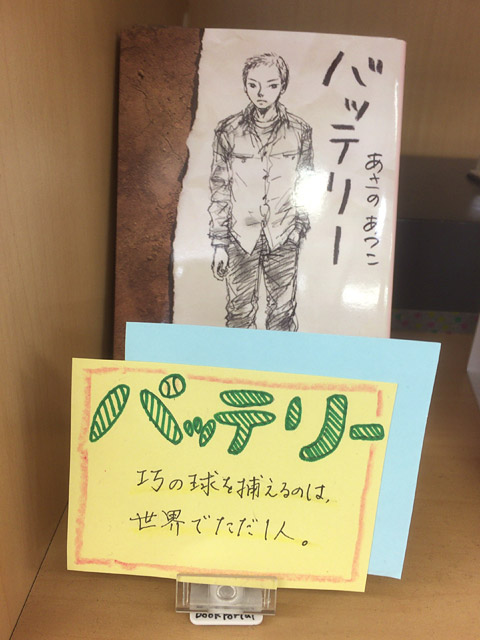 バッテリー
あさの あつこ
バッテリー
巧の球を捕えるのは、
世界でただ1人。
BOOK PORTAL